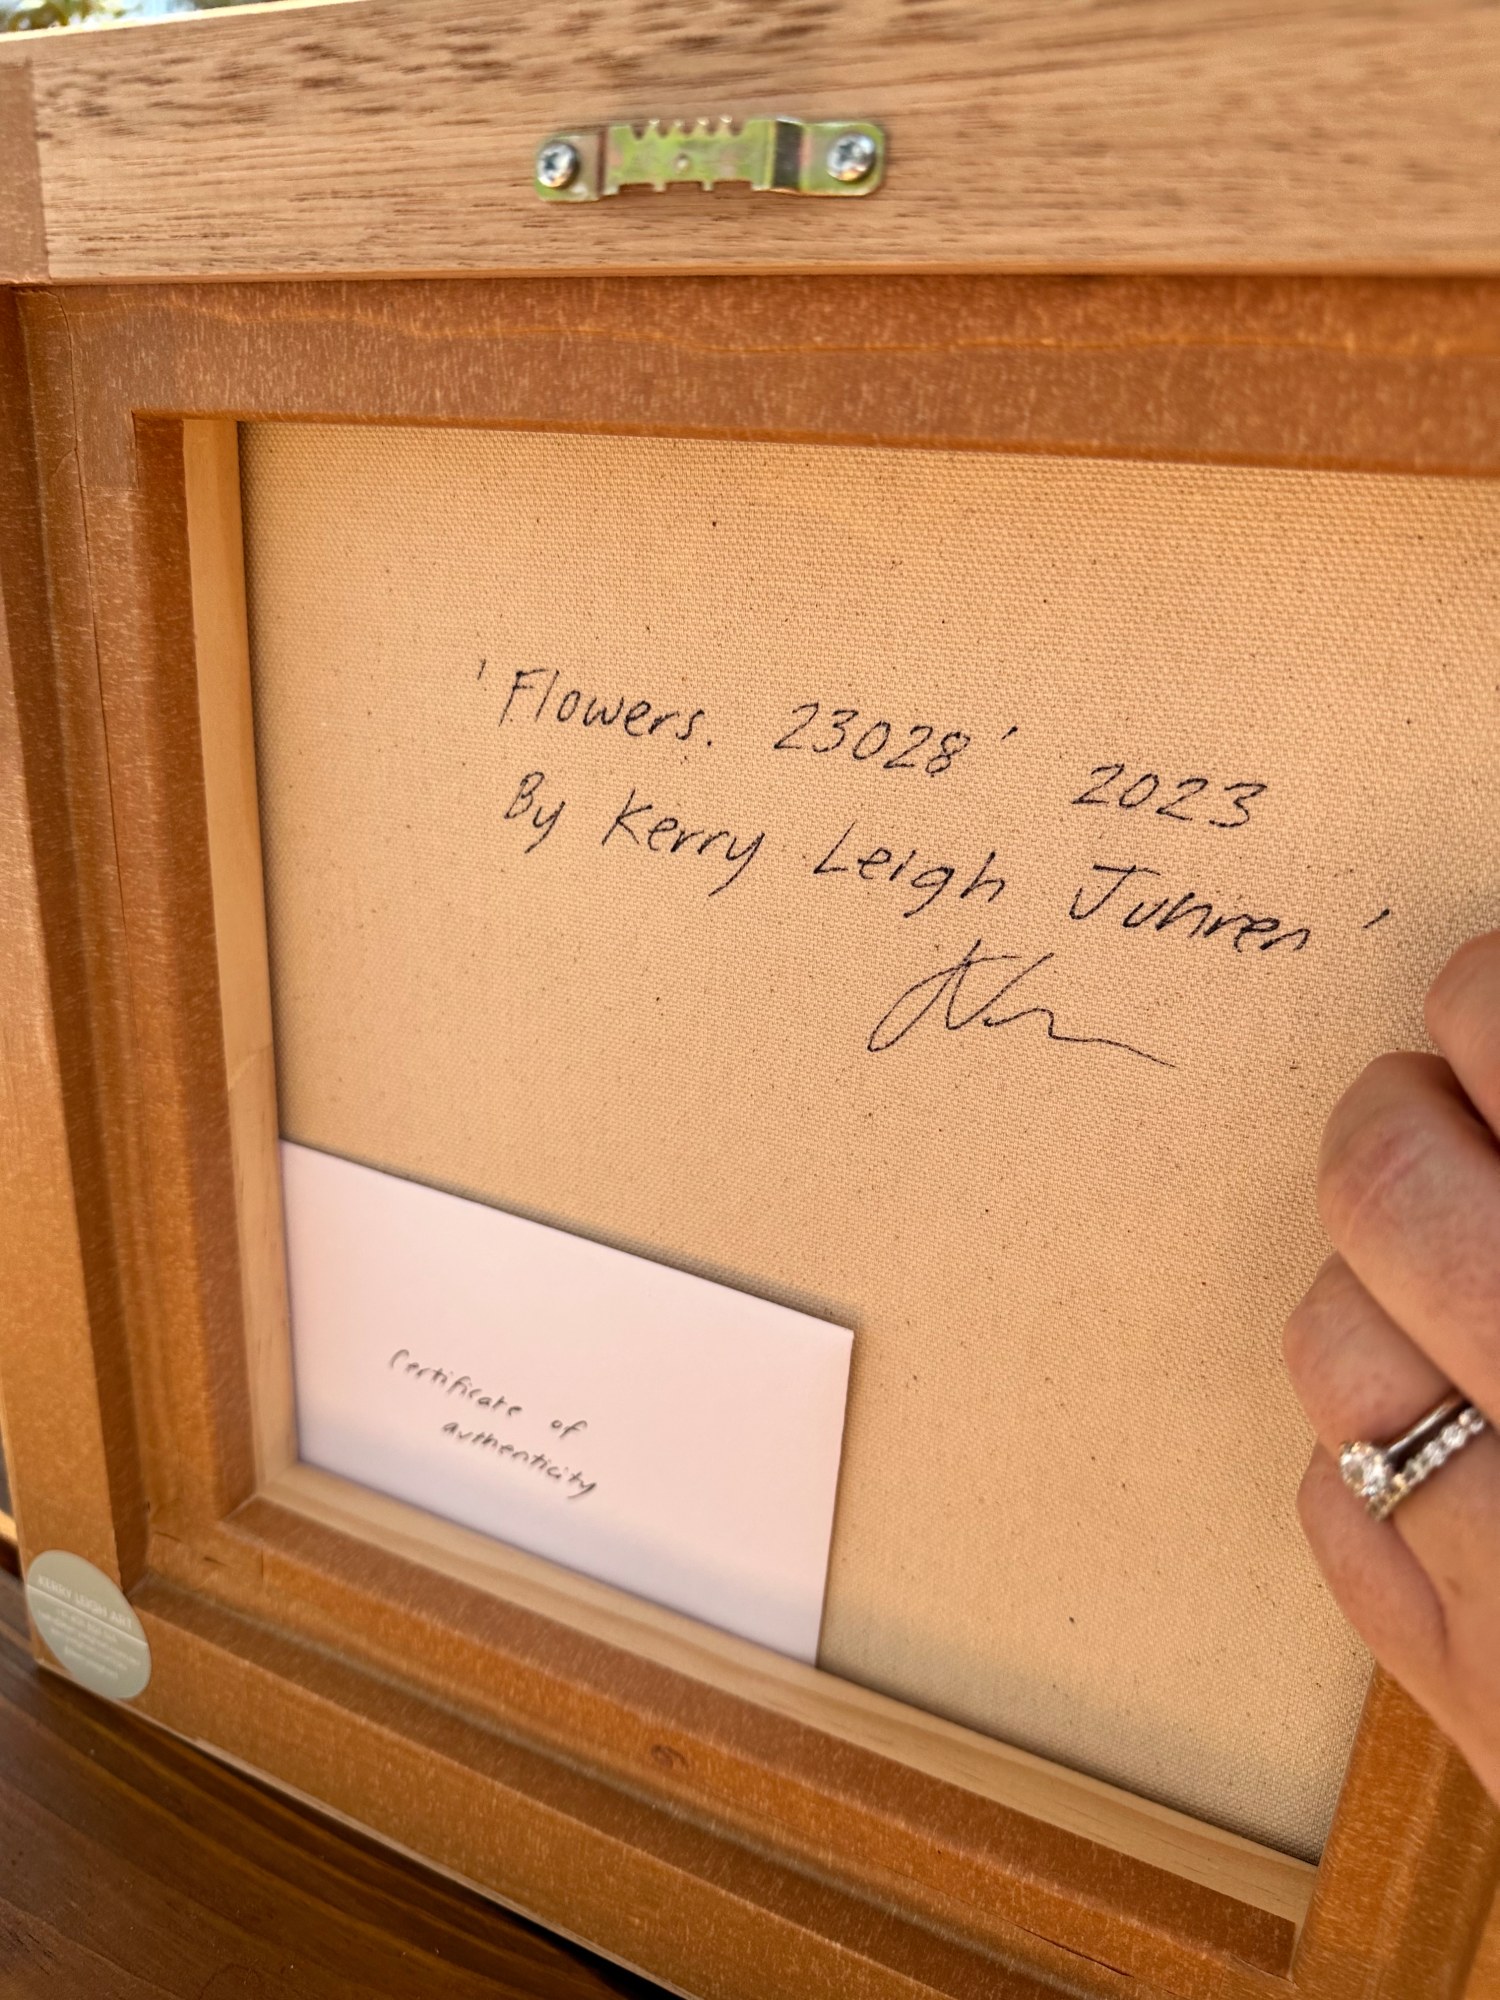 'Flowers. 23028' 2023
By Kerry Leigh Juhren'
Certificate of
authenticity
KERRY LEIGH ART